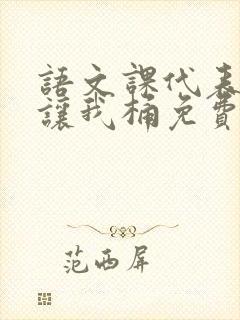 語文課代表
讓我桶免費
范西屏